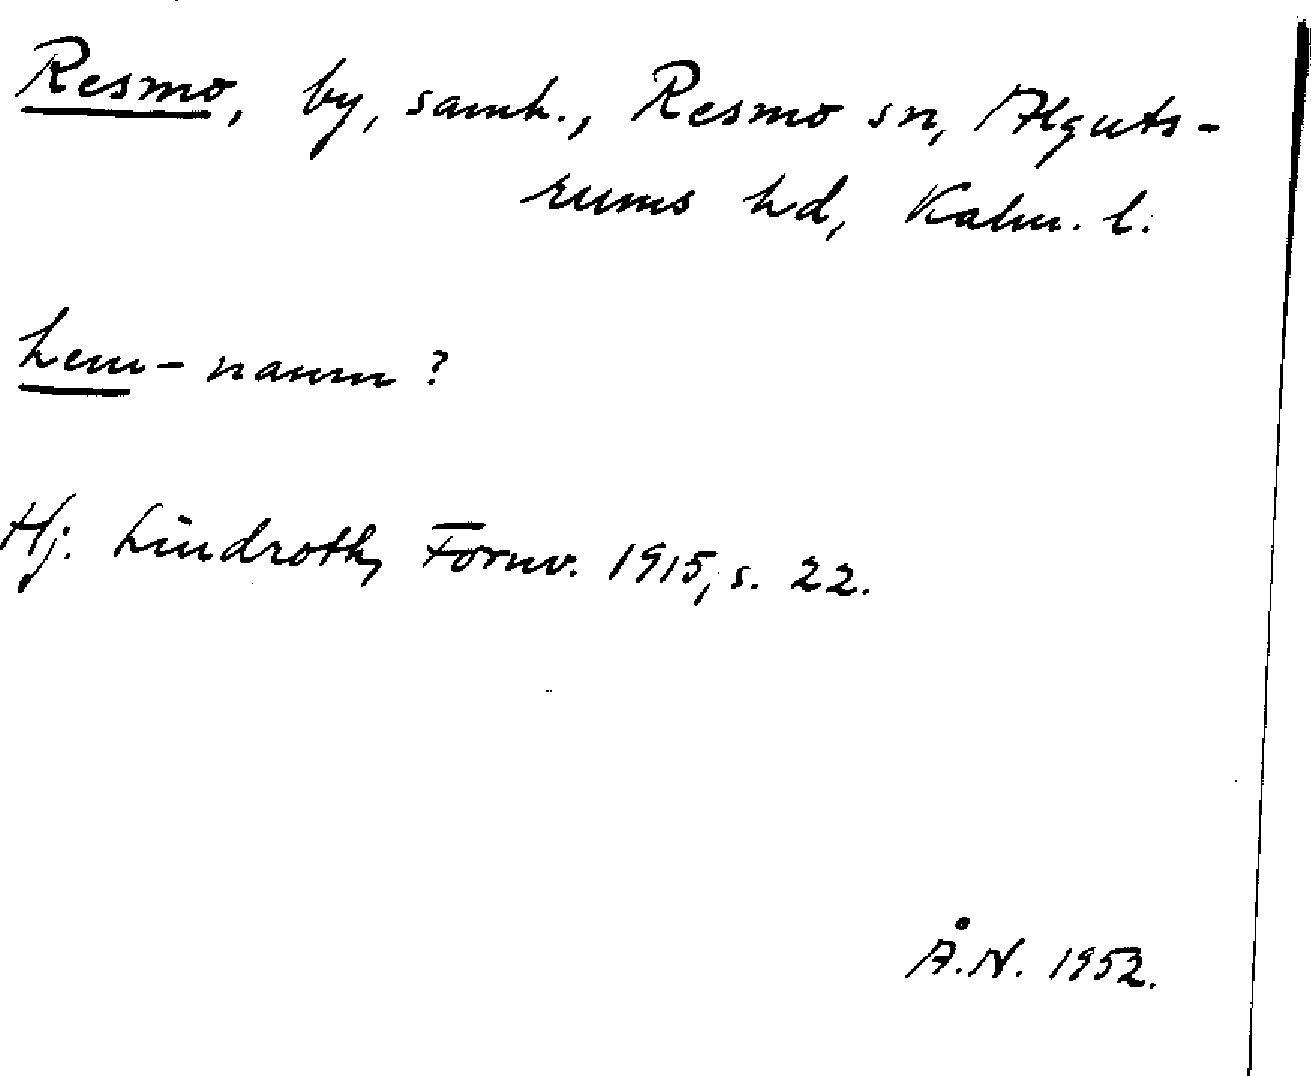 Resmo, by, samh., Resmo sn, Alguts-
rums hd, Kalm. l.
hem-namn?
Hj. Lindroth, Fornv. 1915, s. 22.
Å.N. 1952.